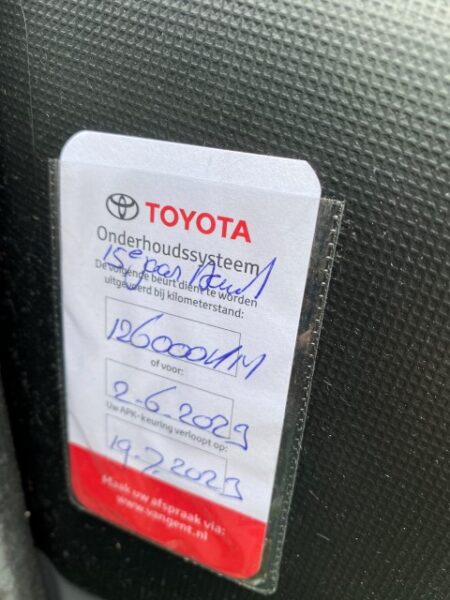 TOYOTA
Onderhoudssysteem
De volgende beurt dient te worden
uitgevoerd bij kilometerstand:
126000KM
of voor:
2-6-2023
Uw APK-keuring verloopt op:
19-7-2023
Maak uw afspraak via:
www.vangent.nl